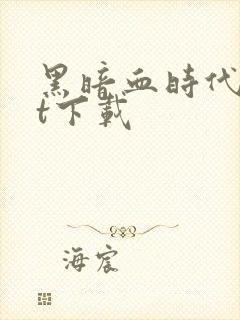 黑暗血時代
t下載
海宸